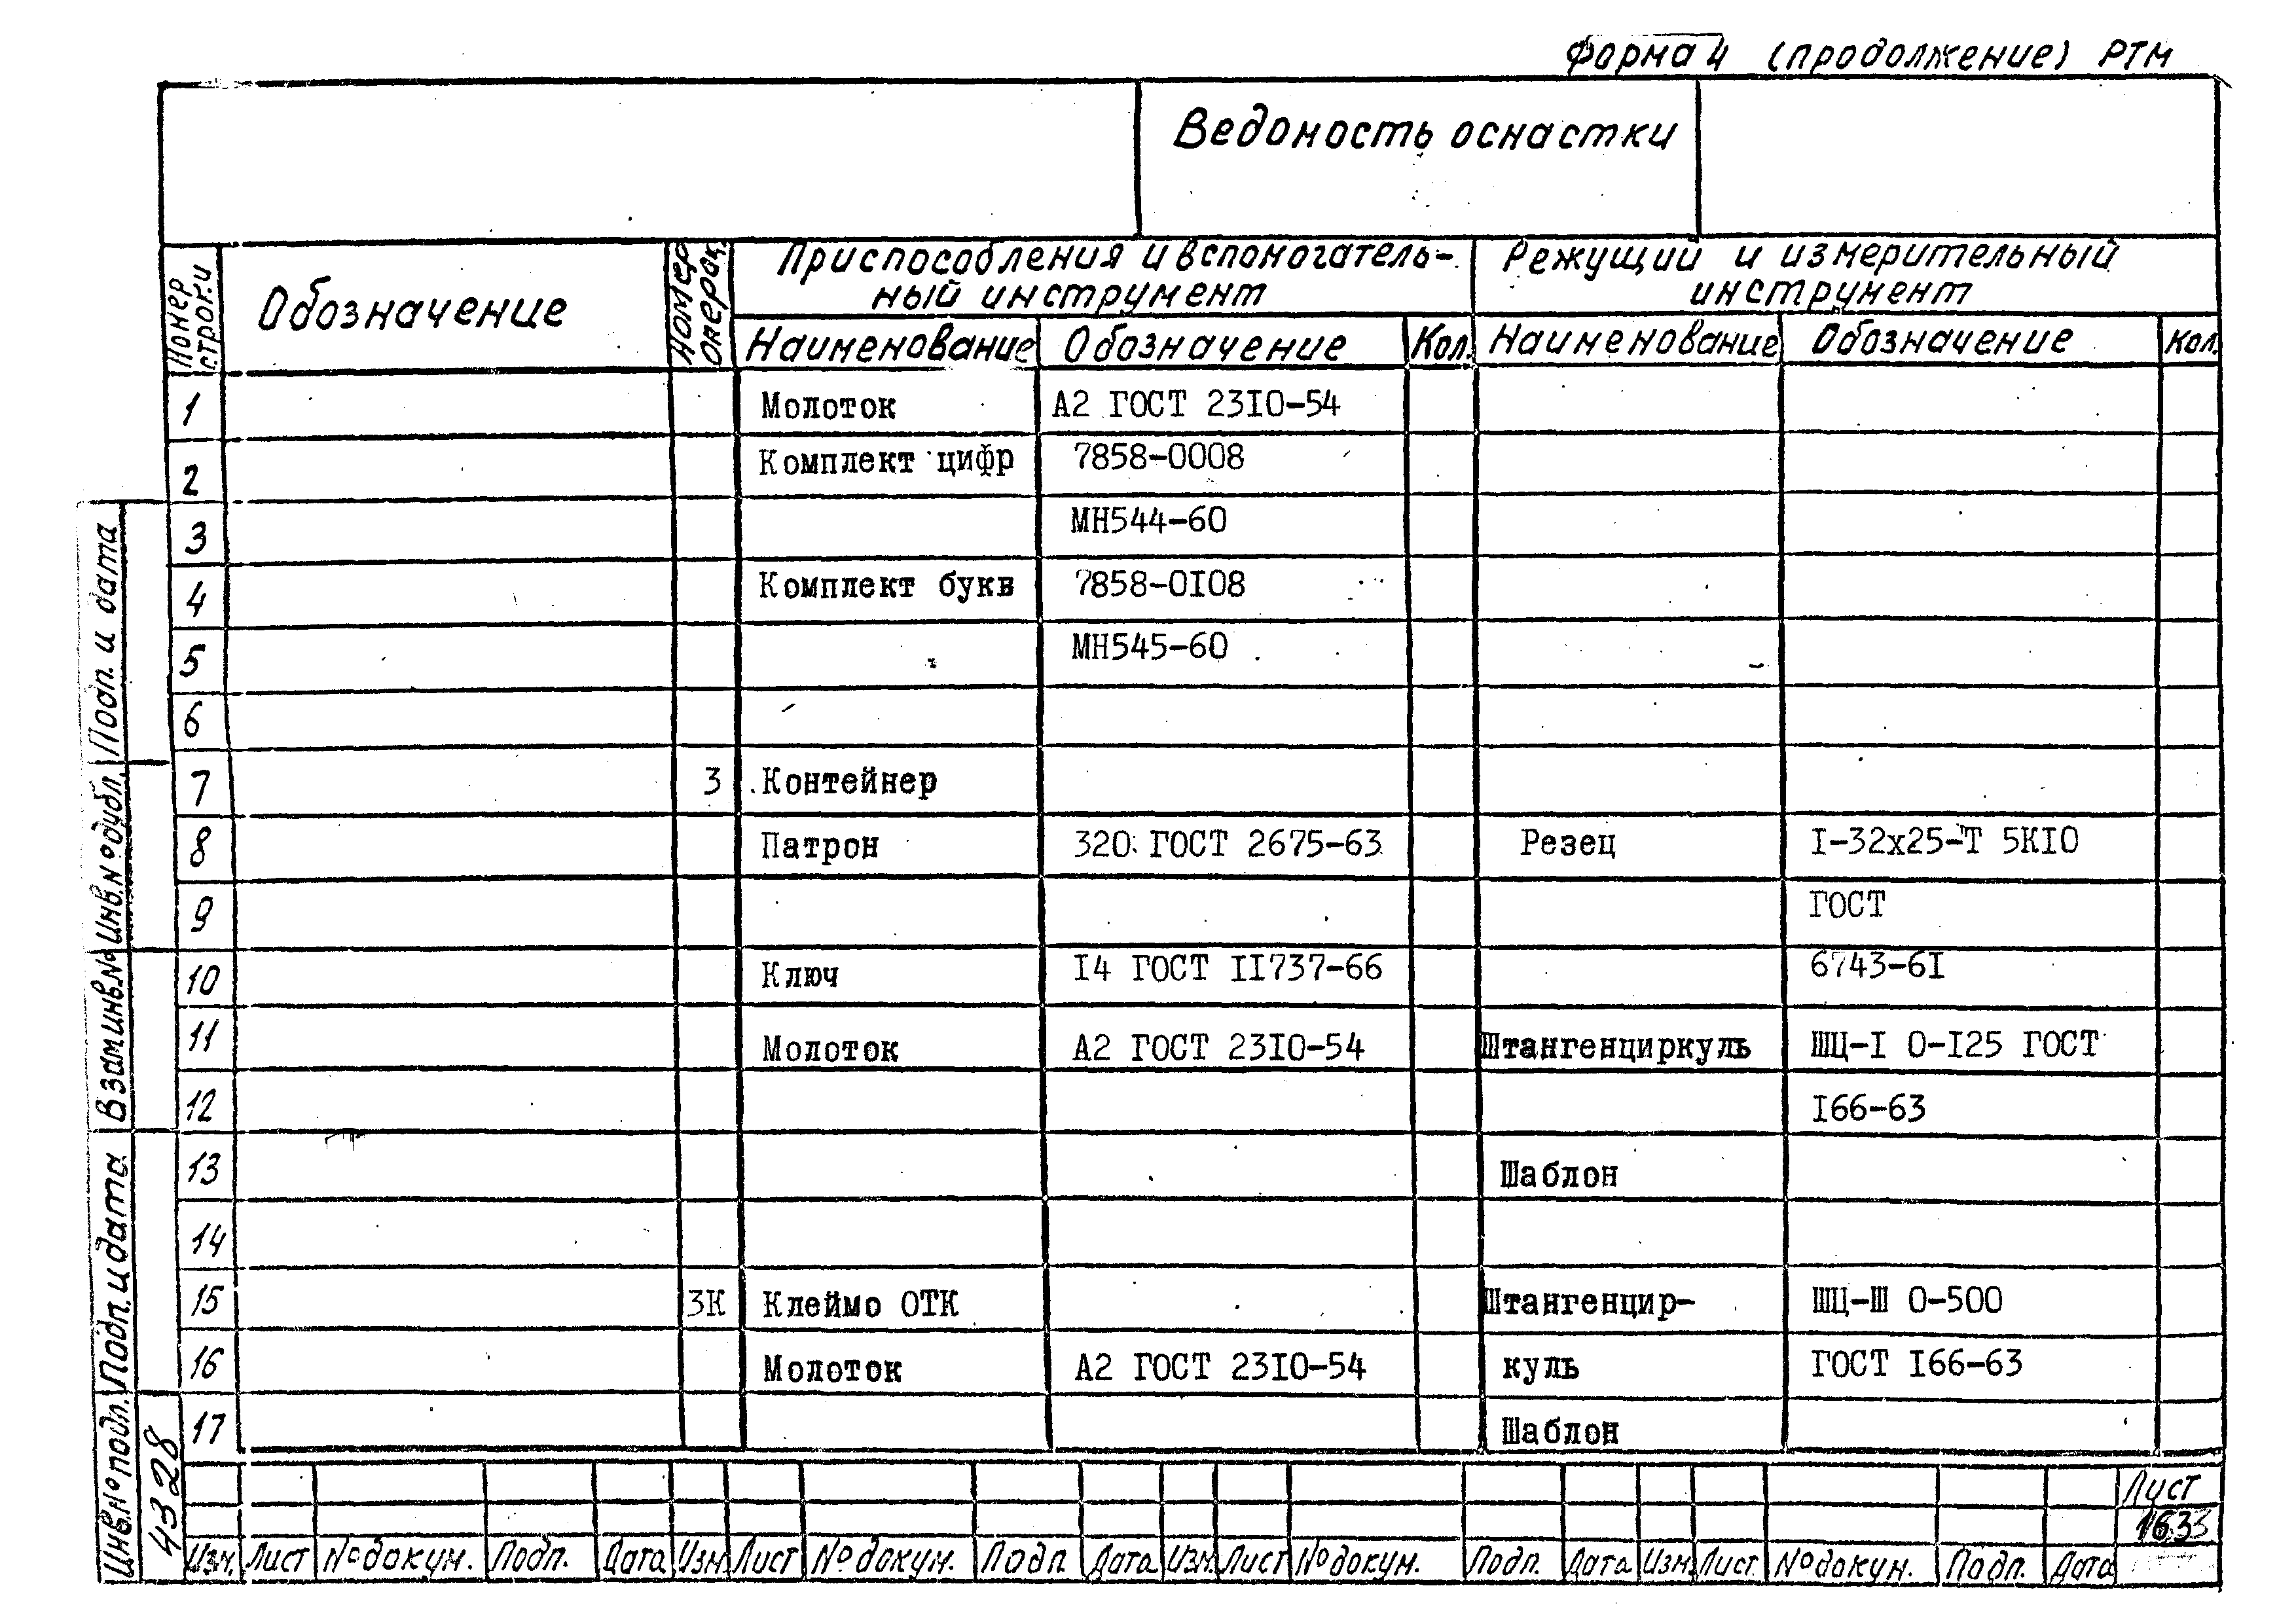 Форма 4 (продолжение) РТМ
Ведомость оснастки
Номер строки
Обозначение
Номер операц.
Приспособления и вспомогатель-
ный инструмент
Режущий и измерительный
инструмент
Наименование Обозначение Кол. Наименование Обозначение Кол.
1 Молоток А2 ГОСТ 2310-54
2 Комплект цифр 7858-0008
3 МН544-60
4 Комплект букв 7858-0108
5 МН545-60
6
7 3 Контейнер
8 Патрон 320 ГОСТ 2675-63 Резец I-32х25-Т 5К10
9 ГОСТ
10 Ключ I4 ГОСТ II737-66 6743-6I
11 Молоток А2 ГОСТ 23I0-54 Штангенциркуль ШЦ-I 0-I25 ГОСТ
12 I66-63
13 Шаблон
14
15 3К Клеймо ОТК Штангенцир- ШЦ-Ш 0-500
16 Молоток А2 ГОСТ 23I0-54 куль ГОСТ I66-63
17 Шаблон
Подп. и дата
Инв.№ дубл.
Взам.инв.№
Подп. и дата
Инв.№ подл.
4328
Лист
Изм. Лист № докум. Подп. Дата Изм. Лист № докум. Подп. Дата Изм. Лист № докум. Подп. Дата Изм. Лист № докум. Подп. Дата